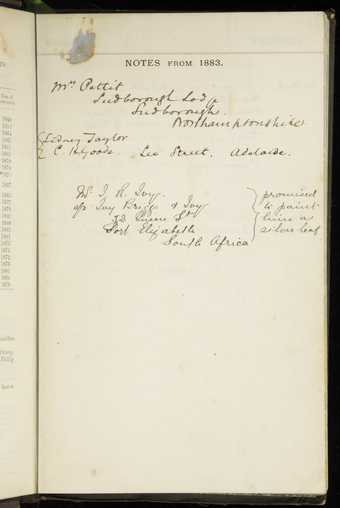 NOTES FROM 1883.
Mrs Pettit
Sudborough Lodge
Sudborough.
Northamptonshire
Sidney Taylor
C. Lee Street. Adelaide.
W. J. R. Ivy.
c/o Ivy Briggs & Ivy
Queen St
Port Elizabeth
South Africa
promised
to paint
him a
silver leaf